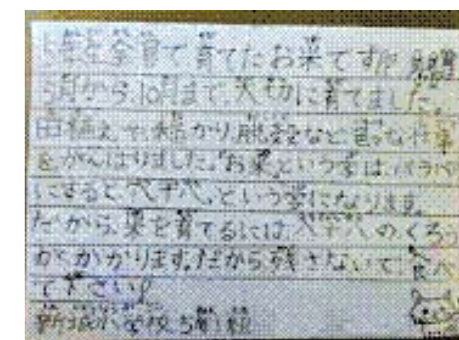 5年生全員で育てたお米です!!
5月から、10月まで、大切に育てました。
田植えや、稲かり、脱穀など色々な作業
をがんばりました。"お米"という字は、バラバラ
にすると、八十八、という字になります。
だから、米を育てるには、八十八のくろう
がかかります。だから残さないで、食べ
て下さい!
新城小学校5年 組